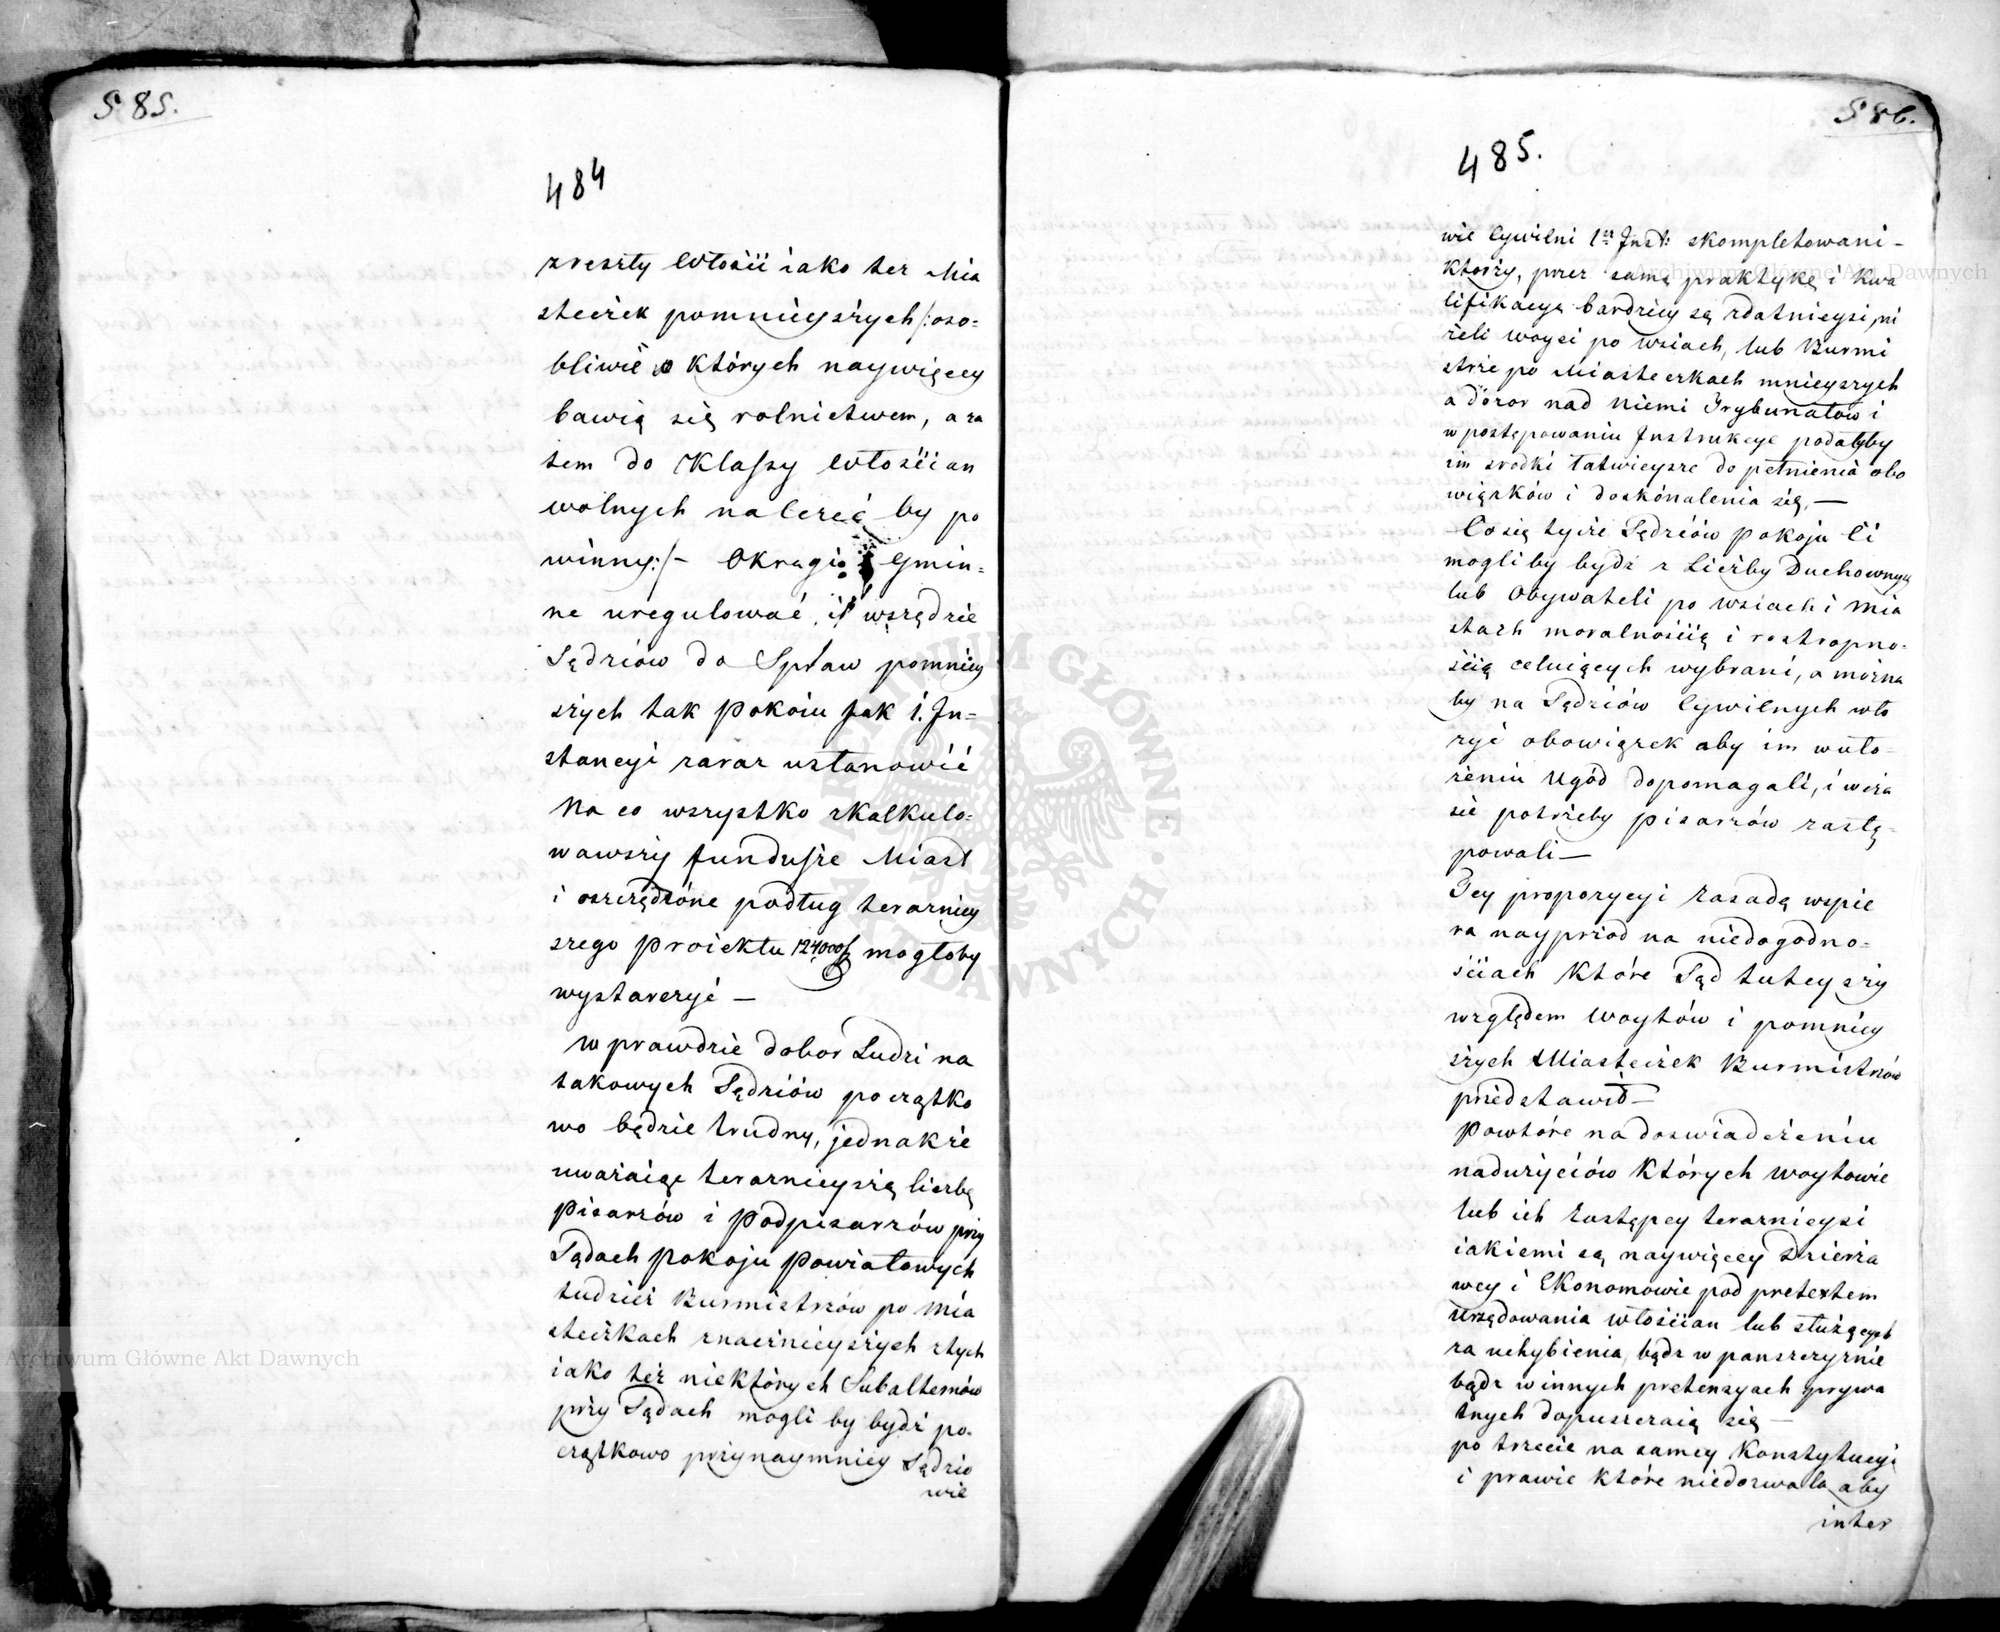 585.
484
zreszty Włości iako też Mia
steczek pomnieyszych /: oso=
bliwie w których naywięcey
bawią się rolnictwem, a za
tem do Klassy Włościan
wolnych należeć by po
winny :/ – Okręgi Gmin=
ne uregulować, i wszędzie
Sędziów do Spraw pomniey
szych tak Pokoiu jak 1. In=
stancyi zaraz ustanowić
Na co wszystko skalkulo=
wawszy fundusze Miast
i oszczędzone podług teraźniey
szego Proiektu 124000 f mogłoby
wystarczyć –
W prawdzie dobór Ludzi na
takowych Sędziów początko
wo będzie trudny, jednakże
uważaiąc teraźnieyszą liczbę
Pisarzów i Podpisarzów przy
Sądach Pokoju Powiatowych
tudzież Burmistrzów po Mia
steczkach znacznieyszych stych
iako też niektórych Subalternów
przy Sądach mogli by bydź po=
czątkowo przynaymniey Sędzio
wie
586.
485.
wie Cywilni 1ey Inst: skompletowani –
Którzy, przez samą praktykę i kwa
lifikacyą bardziey są zdatnieysi, ni
żeli woyci po wsiach, lub Burmi
strze po Miasteczkach mnieyszych
a dozor nad niemi Trybunałow i
w postępowaniu Instrukcye podałyby
im srodki łatwieysze do pełnienia obo
wiązków i doskónalenia się. –
Co się tycze Sędziów Pokoju Ci
mogli by bydź z Liczby Duchownych
lub Obywateli po wsiach i mia
stach moralnością i roztropno=
ścią celuiących wybrani, a można
by na Sędziów Cywilnych wło
żyć obowiązek aby im w uło=
żeniu Ugód dopomagali, i w cza
sie potrzeby Pisarzów zastę=
powali –
Tey proporcyi zasadę wspie
ra nayprzód na niedogodno=
ściach Które Sąd tuteyszy
względem Woytów i pomniey
szych Miasteczek Burmistrzów
przedstawił –
Powtóre na doswiadczeniu
nadużyciów Których Woytowie
lub ich Zastępcy teraźnieysi
iakiemi są naywięcey Dzierża
wcy i Ekonomowie pod pretextem
Urzędowania włościan lub służących
za uchybienia, bądź w panszczyznie
bądź w innych pretensyach prywa
tnych dopuszczaią się –
po trzecie na samey Konstytucyi
i prawie Które niedozwala aby
inter
Archiwum Główne Akt Dawnych
Archiwum Główne Akt Dawnych
ARCHIWUM GŁÓWNE · AKT DAWNYCH ·